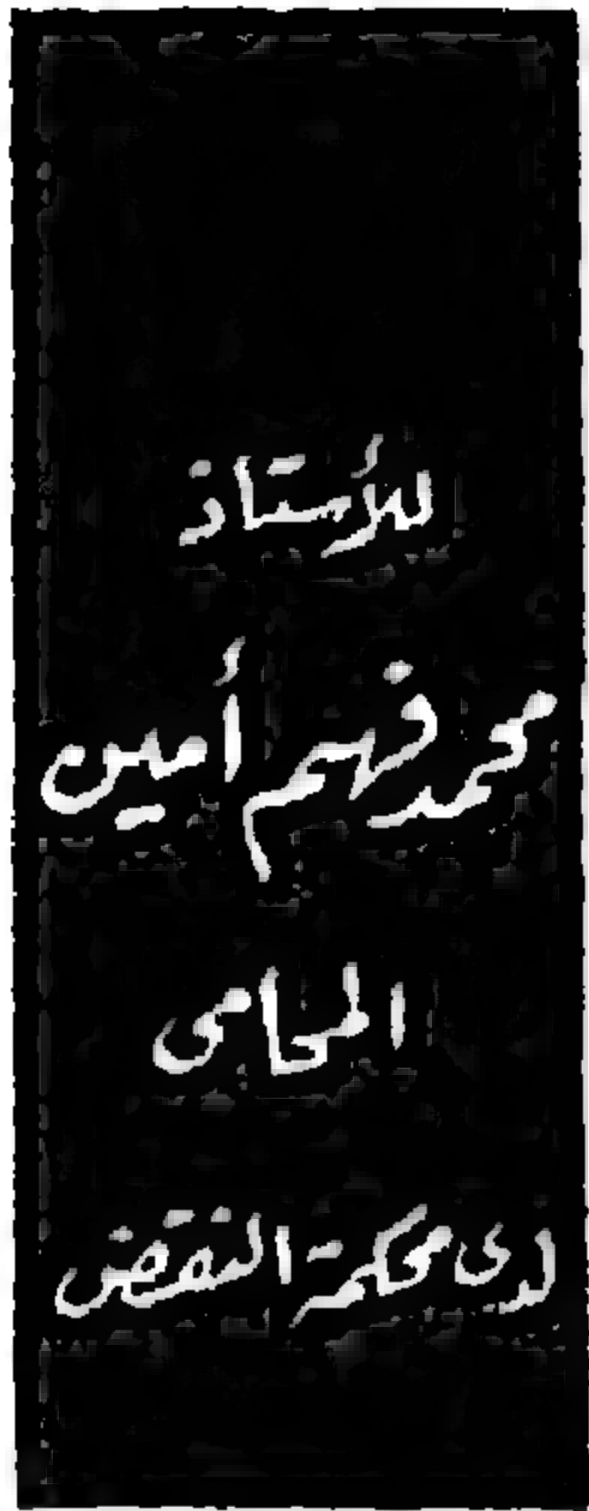 للأستاذ
محمد فهيم أمين
المحامى
لدى محكمة النقض